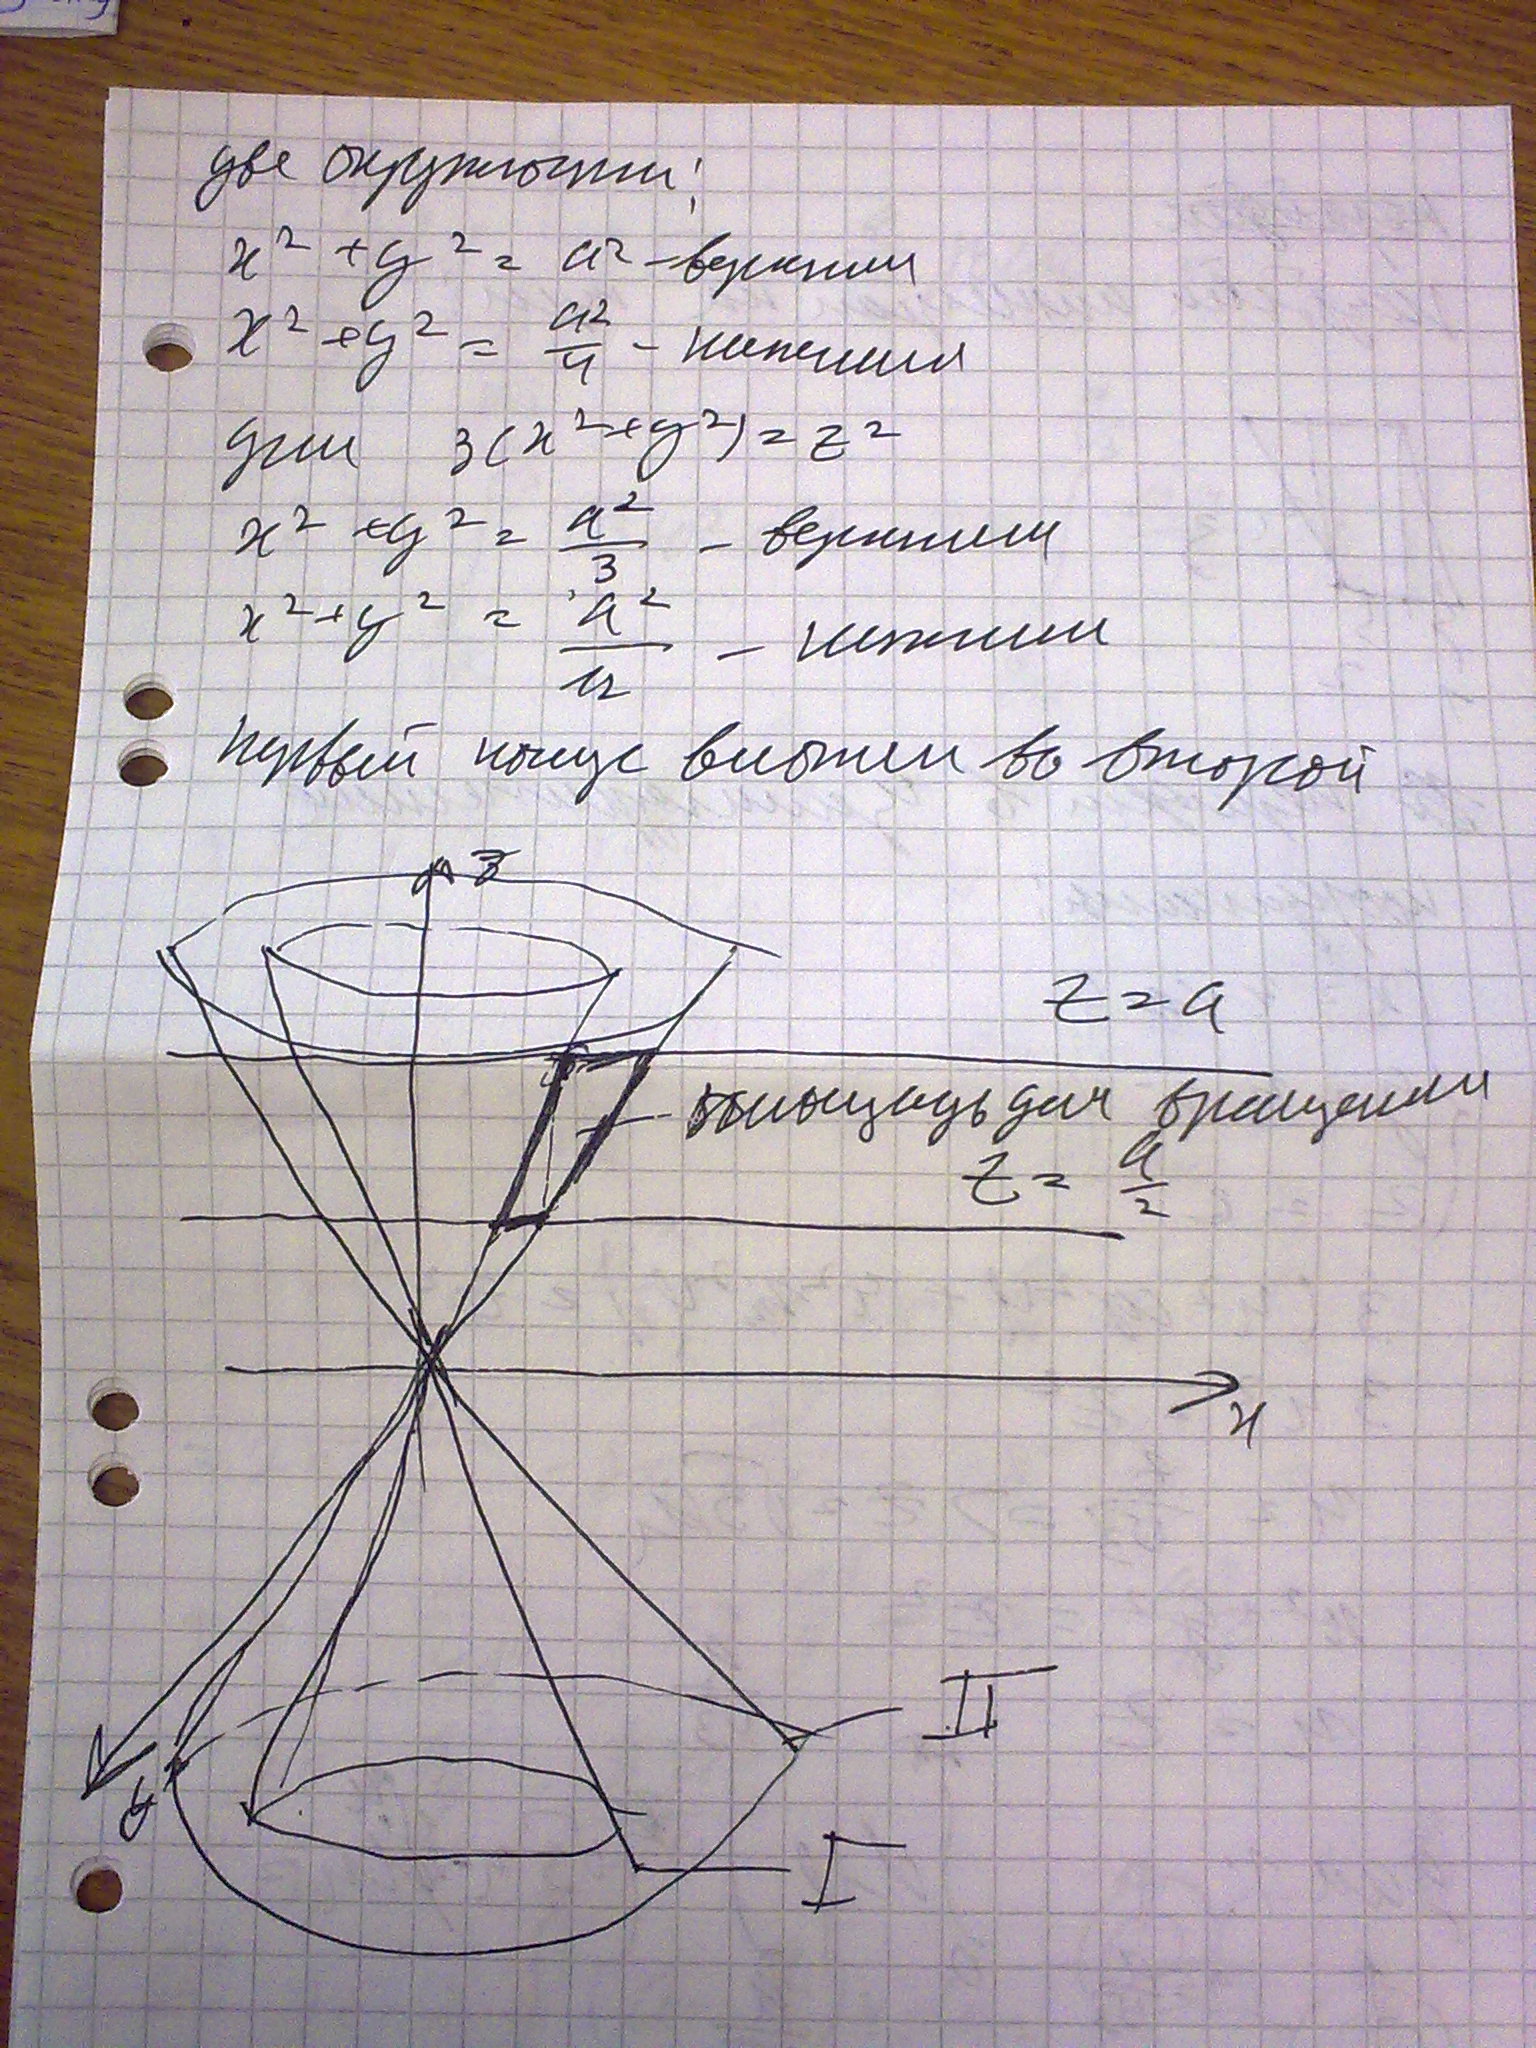 две окружности:
x² + y² = a² - верхняя
x² + y² = a²/4 - нижняя
для 3(x² + y²) = z²
x² + y² = a²/3 - верхняя
x² + y² = a²/12 - нижняя
первый конус вложен во второй
z
z = a
площадь для вращения
z = a/2
x
y
II
I